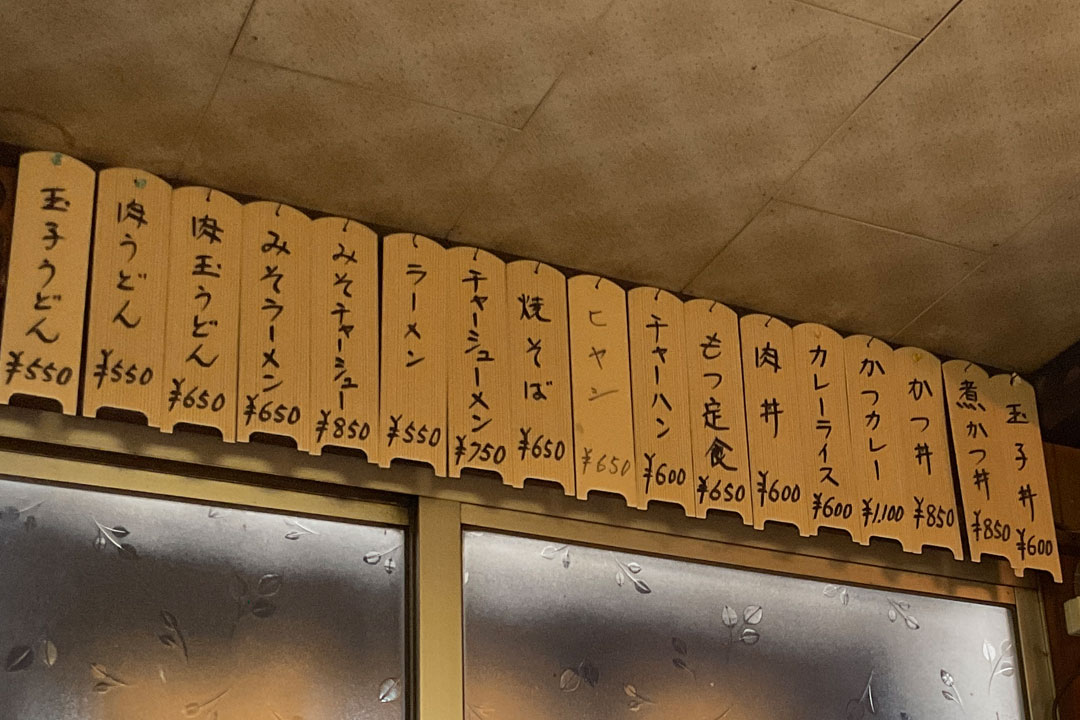 玉子丼
¥600
煮かつ丼
¥850
かつ丼
¥850
かつカレー
¥1,100
カレーライス
¥600
肉丼
¥600
もつ定食
¥650
チャーハン
¥600
ヒヤシ
¥650
焼そば
¥650
チャーシューメン
¥750
ラーメン
¥550
みそチャーシュー
¥850
みそラーメン
¥650
肉玉うどん
¥650
肉うどん
¥550
玉子うどん
¥550